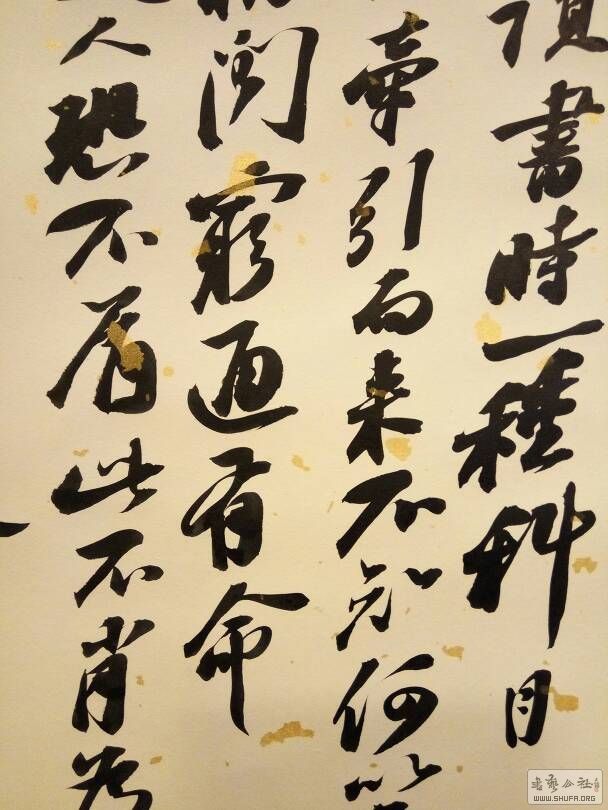 書時一種科目
牽引而來不知何
窮通有命
人恐不屑此不肖為
書藝公社
WWW.SHUFA.ORG